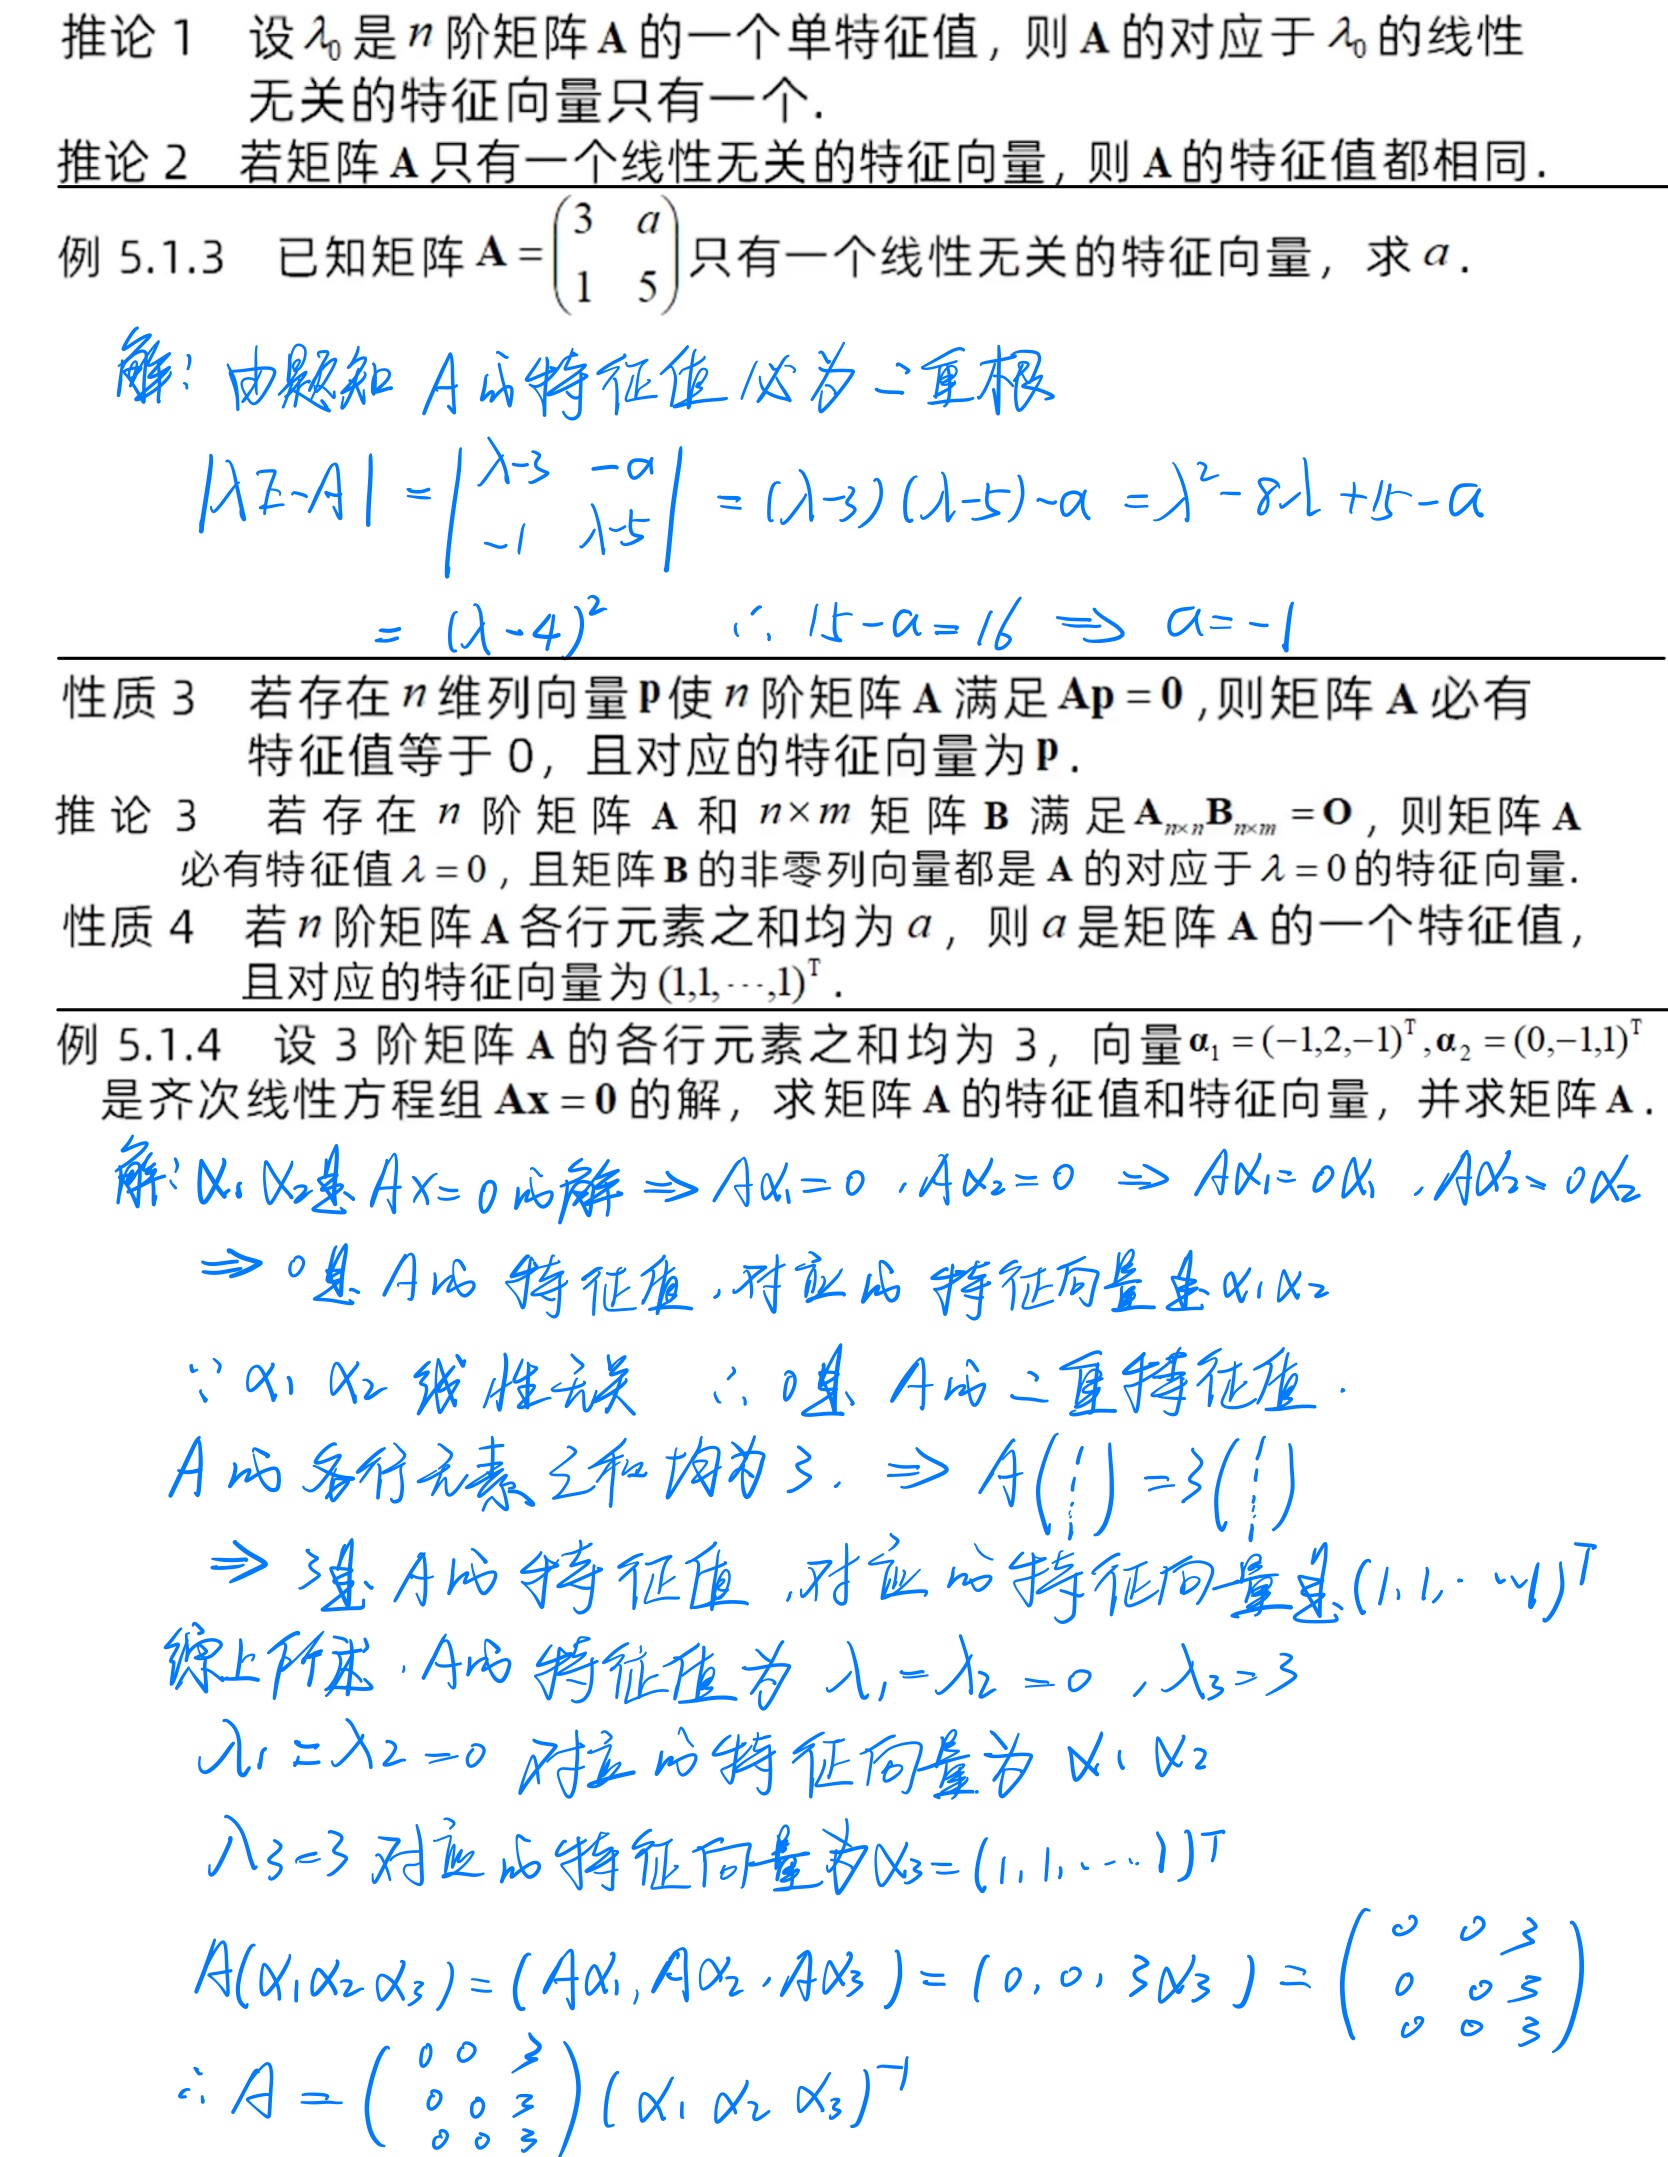 推论 1 设 λ₀ 是 n 阶矩阵 A 的一个单特征值，则 A 的对应于 λ₀ 的线性
无关的特征向量只有一个.
推论 2 若矩阵 A 只有一个线性无关的特征向量，则 A 的特征值都相同.
例 5.1.3 已知矩阵 A = (3 a; 1 5) 只有一个线性无关的特征向量，求 a.
解：由题知 A的特征值必为二重根
|λE-A| = |λ-3 -a; -1 λ-5| = (λ-3)(λ-5)-a = λ²-8λ+15-a
= (λ-4)² ∴ 15-a=16 ⇒ a=-1
性质 3 若存在 n 维列向量 p 使 n 阶矩阵 A 满足 Ap = 0 ,则矩阵 A 必有
特征值等于 0，且对应的特征向量为 p.
推论 3 若存在 n 阶矩阵 A 和 n×m 矩阵 B 满足 Aₙ×ₙBₙ×ₘ = O，则矩阵 A
必有特征值 λ = 0，且矩阵 B 的非零列向量都是 A 的对应于 λ = 0 的特征向量.
性质 4 若 n 阶矩阵 A 各行元素之和均为 a，则 a 是矩阵 A 的一个特征值，
且对应的特征向量为 (1,1,⋯,1)ᵀ.
例 5.1.4 设 3 阶矩阵 A 的各行元素之和均为 3，向量 α₁ = (−1,2,−1)ᵀ,α₂ = (0,−1,1)ᵀ
是齐次线性方程组 Ax = 0 的解，求矩阵 A 的特征值和特征向量，并求矩阵 A.
解：α₁ α₂是 Ax=0的解 ⇒ Aα₁=0，Aα₂=0 ⇒ Aα₁=0α₁，Aα₂=0α₂
⇒ 0是 A的 特征值，对应的 特征向量是 α₁α₂
∵ α₁ α₂ 线性无关 ∴ 0是 A的二重特征值.
A的各行元素之和均为3. ⇒ A(1 1 ⋮ 1) = 3(1 1 ⋮ 1)
⇒ 3是A的特征值，对应的特征向量是(1,1,⋯,1)ᵀ
综上所述，A的特征值为 λ₁=λ₂=0，λ₃=3
λ₁=λ₂=0 对应的特征向量为 α₁ α₂
λ₃=3 对应的特征向量为α₃=(1,1,⋯1)ᵀ
A(α₁α₂α₃)=(Aα₁,Aα₂,Aα₃)=(0,0,3α₃)=(0 0 3; 0 0 3; 0 0 3)
∴ A = (0 0 3; 0 0 3; 0 0 3)(α₁ α₂ α₃)⁻¹